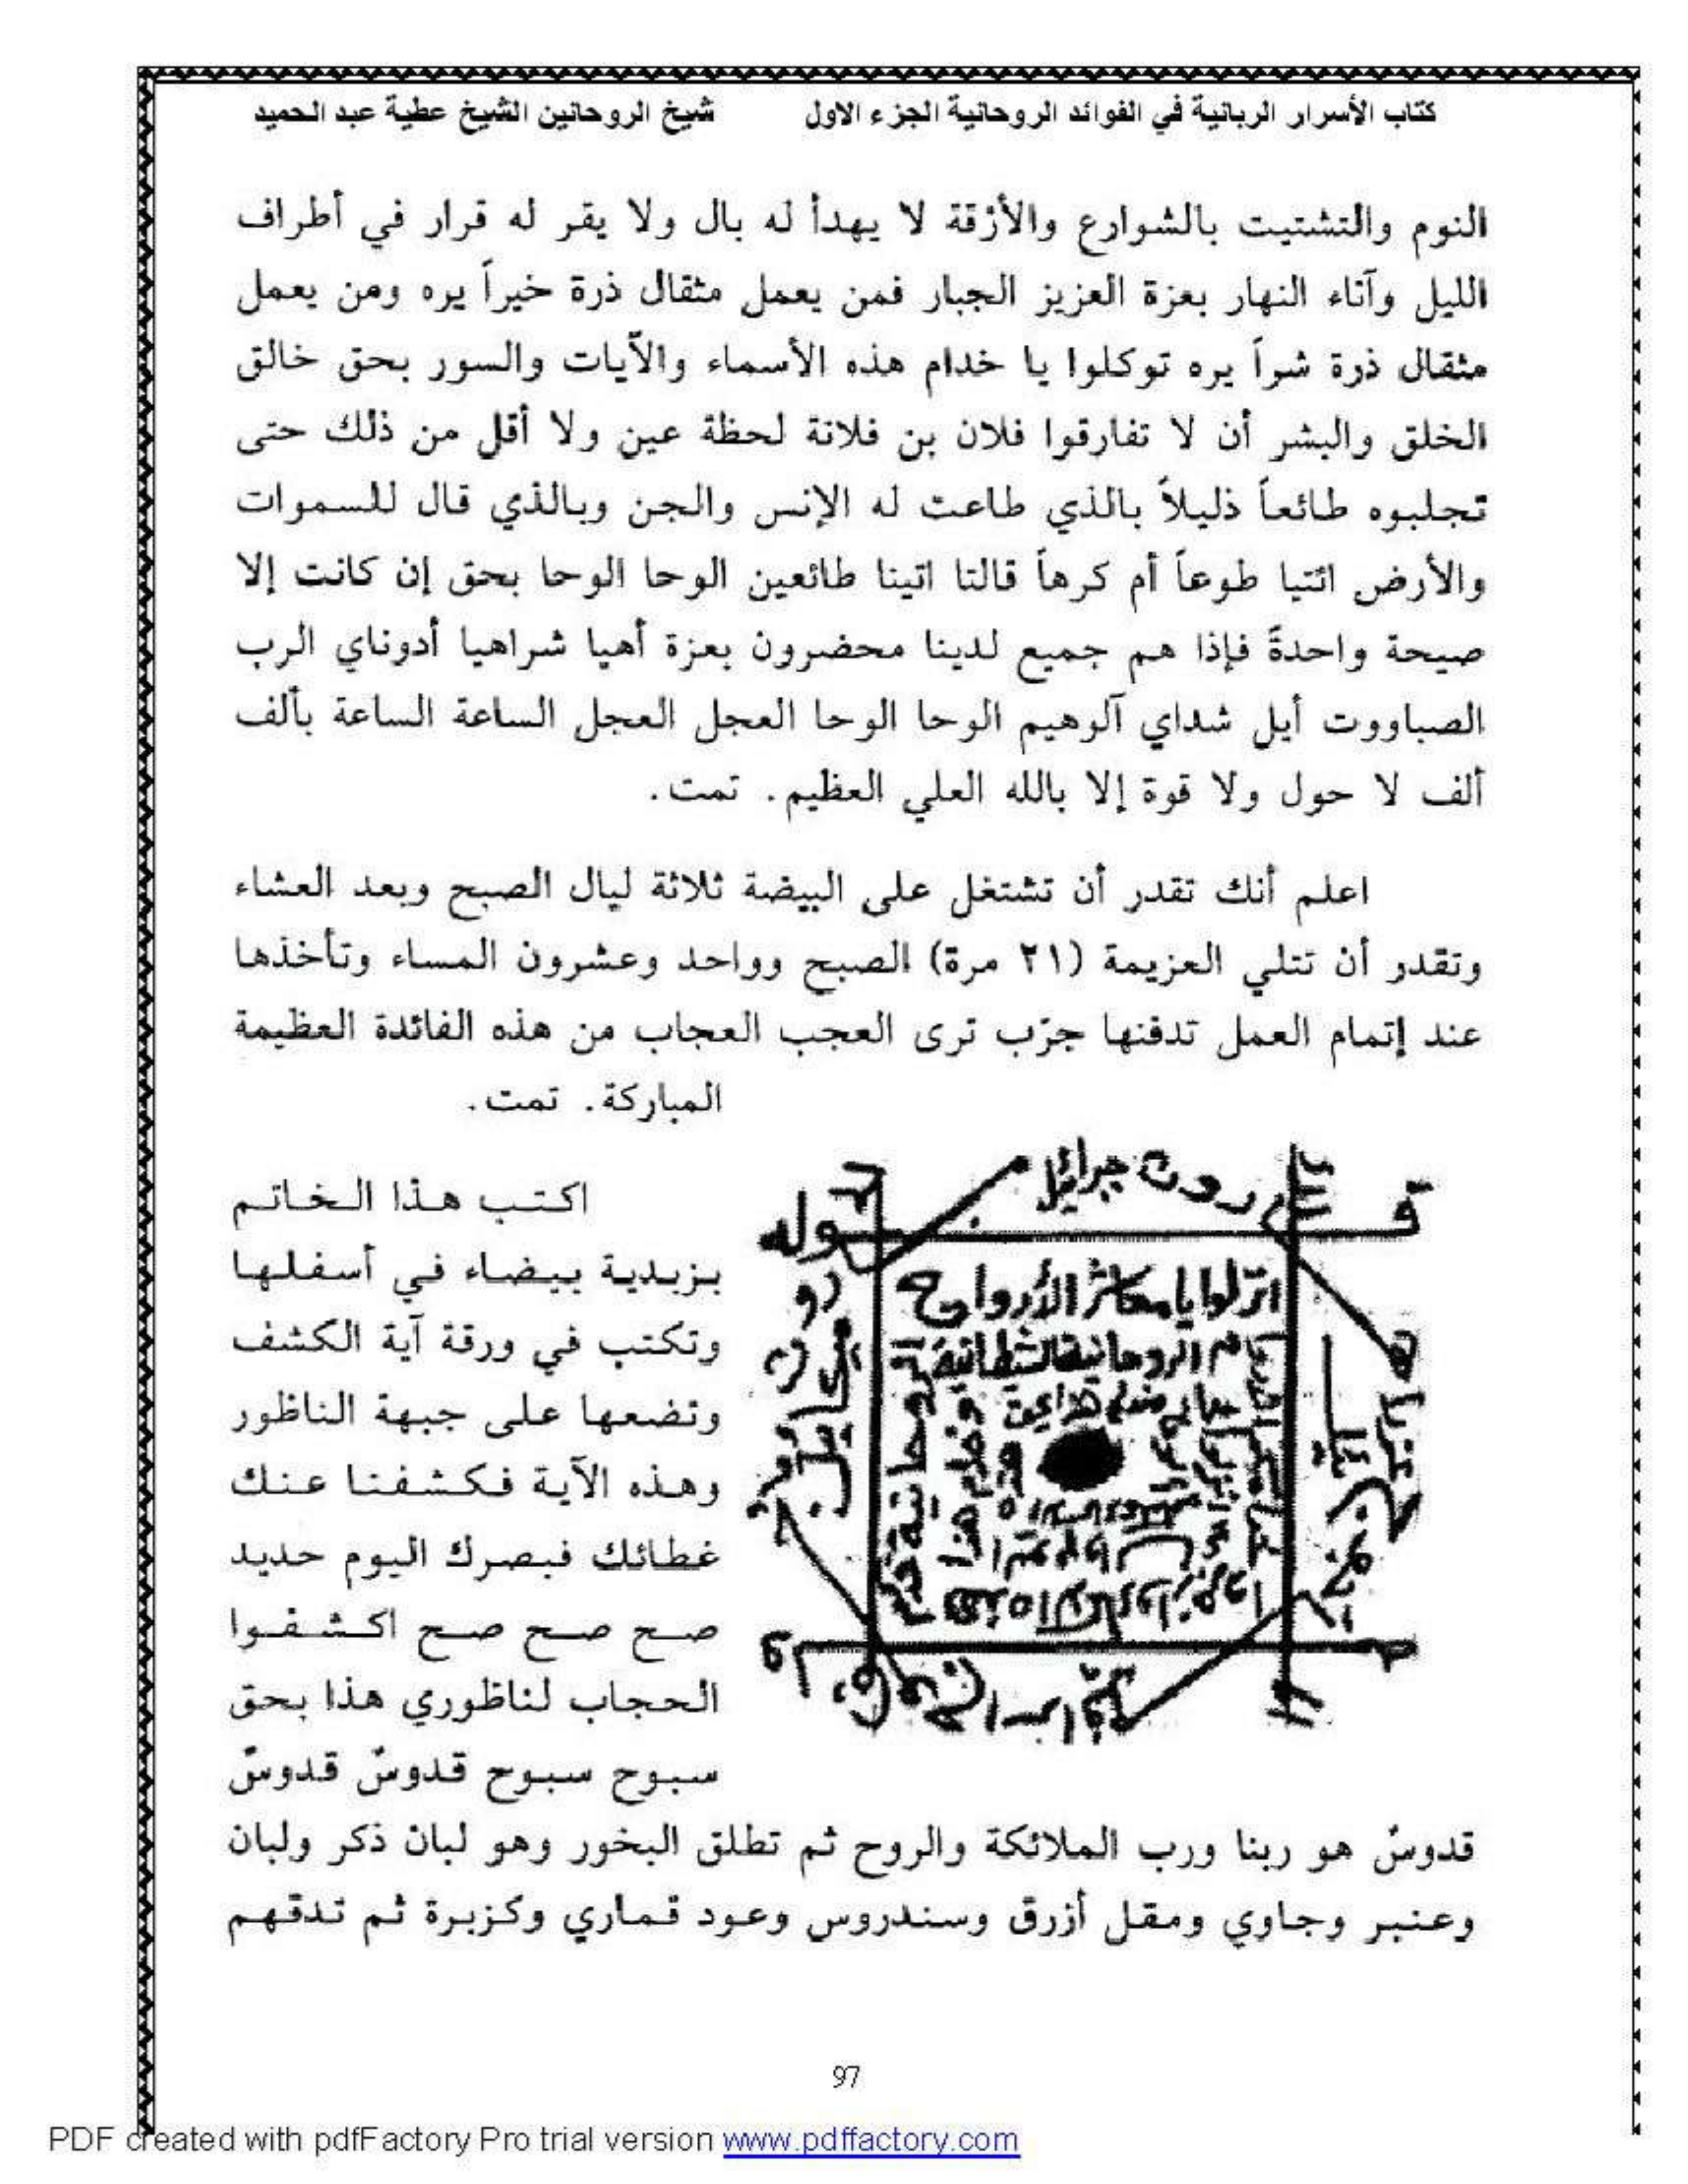 كتاب الأسرار الربانية في الفوائد الروحانية الجزء الاول شيخ الروحانين الشيخ عطية عبد الحميد
النوم والتشتيت بالشوارع والأزقة لا يهدأ له بال ولا يقر له قرار في أطراف
الليل وآناء النهار بعزة العزيز الجبار فمن يعمل مثقال ذرة خيراً يره ومن يعمل
مثقال ذرة شراً يره توكلوا يا خدام هذه الأسماء والآيات والسور بحق خالق
الخلق والبشر أن لا تفارقوا فلان بن فلانة لحظة عين ولا أقل من ذلك حتى
تجلبوه طائعاً ذليلاً بالذي طاعت له الإنس والجن وبالذي قال للسموات
والأرض ائتيا طوعاً أم كرهاً قالتا اتينا طائعين الوحا الوحا بحق إن كانت إلا
صيحة واحدةً فإذا هم جميع لدينا محضرون بعزة أهيا شراهيا أدوناي الرب
الصباووت أيل شداي آلوهيم الوحا الوحا العجل العجل الساعة الساعة بألف
ألف لا حول ولا قوة إلا بالله العلي العظيم. تمت.
اعلم أنك تقدر أن تشتغل على البيضة ثلاثة ليال الصبح وبعد العشاء
وتقدر أن تتلي العزيمة (٢١ مرة) الصبح وواحد وعشرون المساء وتأخذها
عند إتمام العمل تدفنها جرّب ترى العجب العجاب من هذه الفائدة العظيمة
المباركة. تمت.
اكتب هذا الخاتم
بزبدية بيضاء في أسفلها
وتكتب في ورقة آية الكشف
وتضعها على جبهة الناظور
وهذه الآية فكشفنا عنك
غطائك فبصرك اليوم حديد
صح صح صح اكشفوا
الحجاب لناظوري هذا بحق
سبوح سبوح قدوسٌ قدوسٌ
جبرائيل
وله
انزلوا يا معاشر الأرواح
الروحانية
قدوسٌ هو ربنا ورب الملائكة والروح ثم تطلق البخور وهو لبان ذكر ولبان
وعنبر وجاوي ومقل أزرق وسندروس وعود قماري وكزبرة ثم تدقهم
97
PDF created with pdfFactory Pro trial version www.pdffactory.com